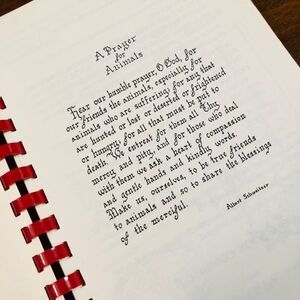 A Prayer
for
Animals
Hear our humble prayer, O God, for
our friends the animals, especially for
animals who are suffering; for any that
are hunted or lost or deserted or frightened
or hungry; for all that must be put to
death. We entreat for them all thy
mercy and pity, and for those who deal
with them we ask a heart of compassion
and gentle hands and kindly words.
Make us, ourselves, to be true friends
to animals and so to share the blessings
of the merciful.
Albert Schweitzer